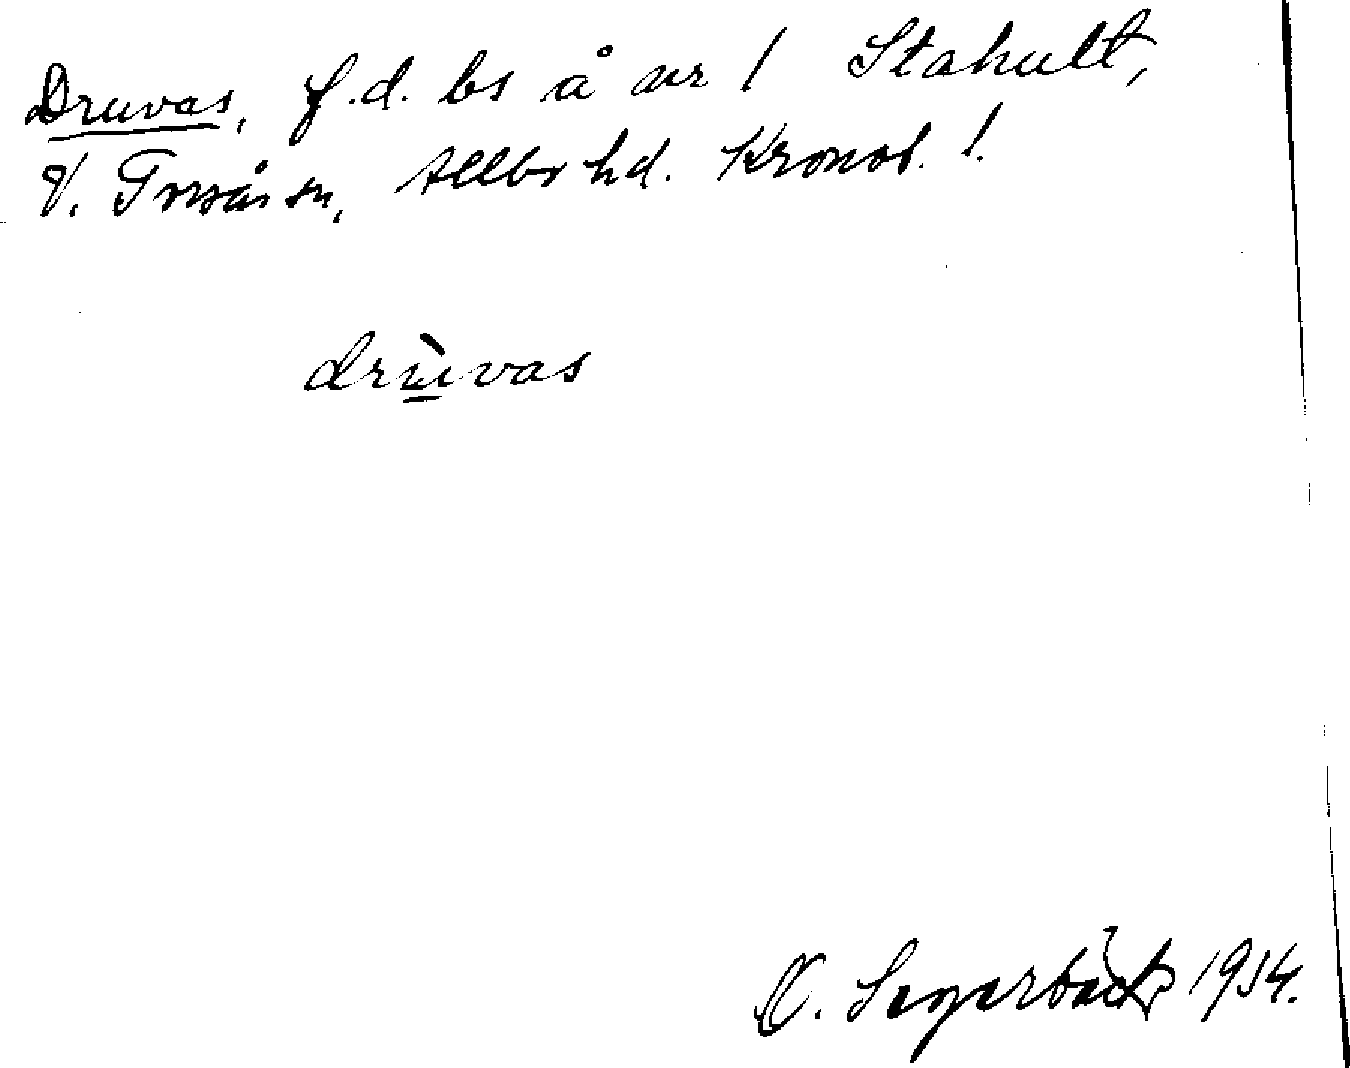 Druvas, f.d. bs å nr 1 Stahult,
V. Torsås sn, Allbo hd. Kronob. l.
drùvas
O. Segerbäck 1914.